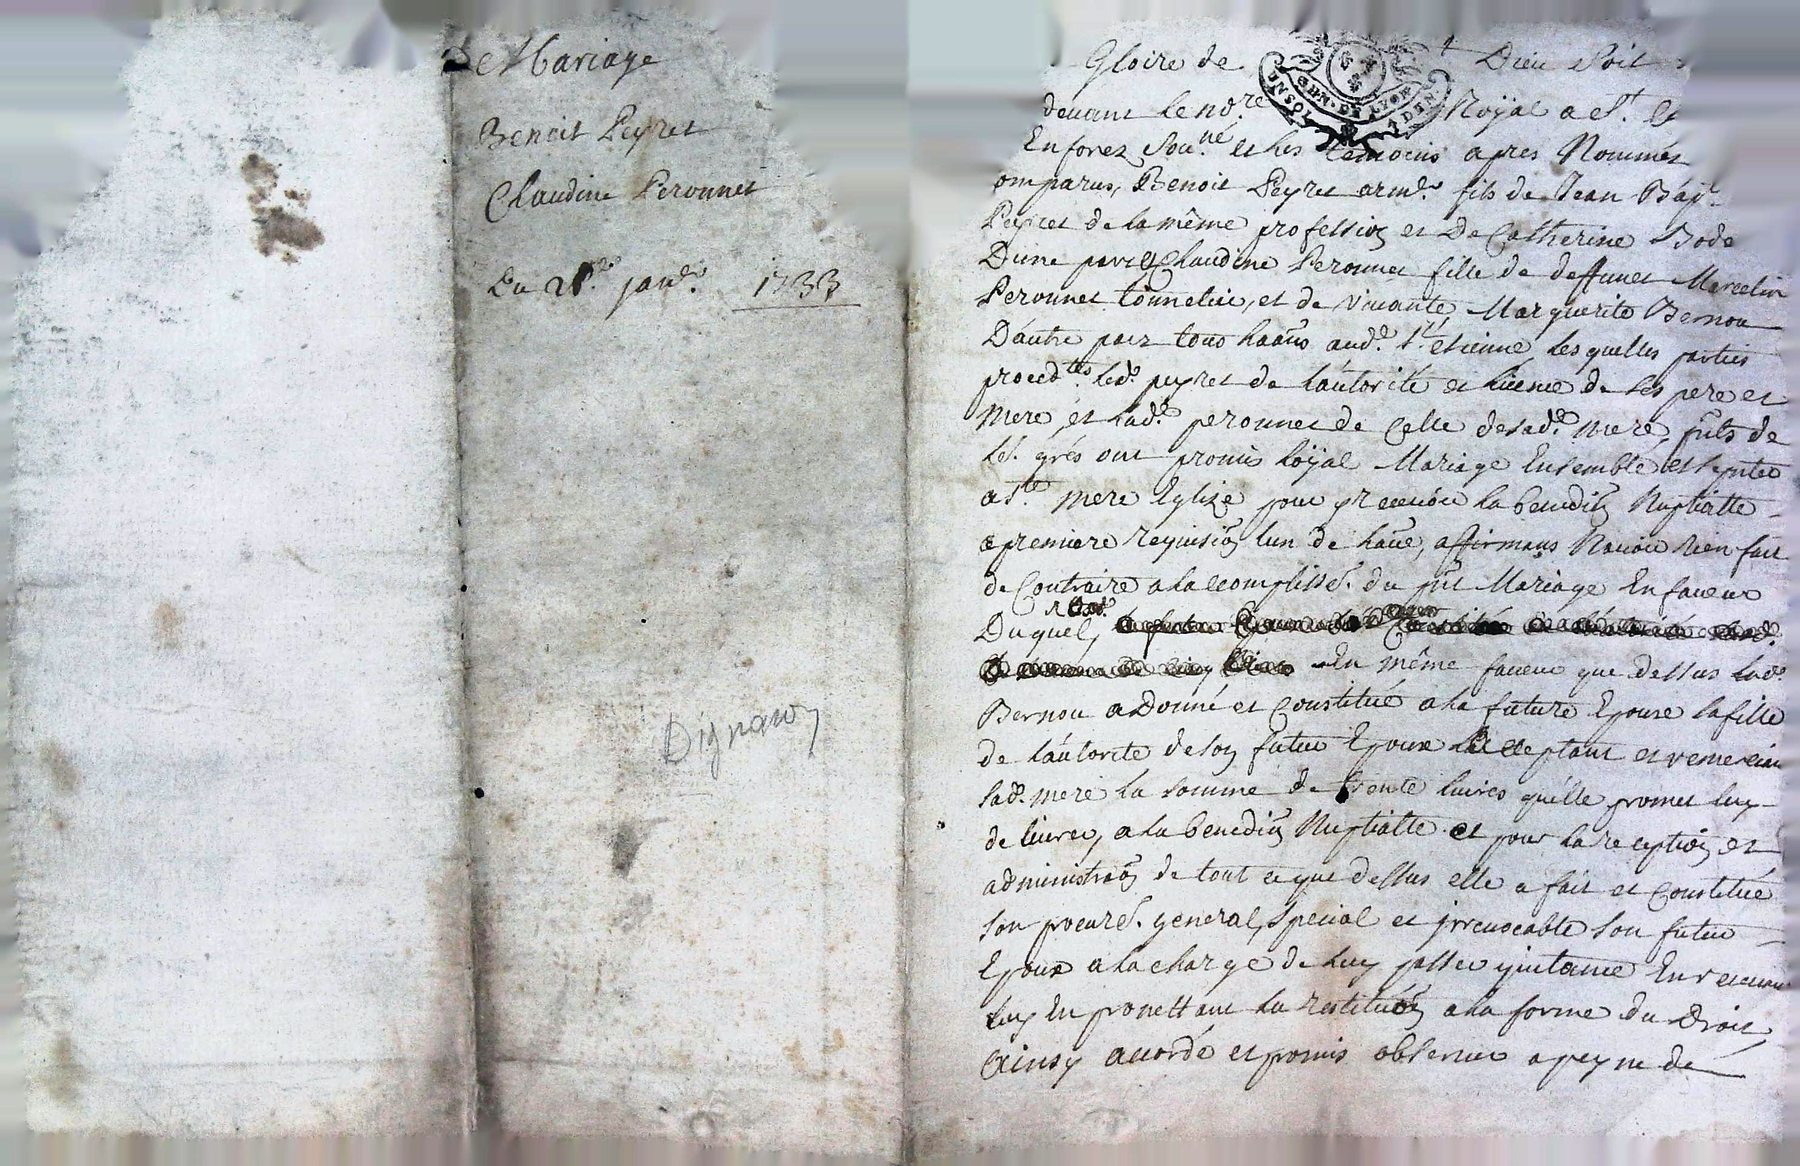 de Mariage
Benoit Peyret
Claudine Peronnet
Du 21e. janr. 1733
Dignaron
Gloire de Dieu Soit
GEN. DE LYON
devant le nore. Royal a St. Et
En forez Sousné. et les temoins apres Nommés
omparus, Benoit Peyret armr. fils de Jean Bapt.
Peyret de la même profession et De Catherine Bode
Dune part & Claudine Peronnet fille de deffunct Marcelin
Peronnet tonnelier, et de vivante Marguerite Bernou
Dautre part tous haans aud. St. étienne, les quelles parties
proced.tes led. peyret de lautorité et licence de ses pere et
Mere, et lad. peronnet de Celle desad. mere, puts de
Le. grés ont promis loyal Mariage Ensemble et
a Ste. mere Eglize pour y recevoir la benedion Nuptialle
a premiere requision lun de lautre, affirmans Navoir rien fait
de Contraire a lacomplisst. du put Mariage En faveur
Duquel
En même faveur que dessus lad.
Bernou a Donné et Constitué a la future Epouse Safille
de lautorité de son futur Epoux acceptant et remerciant
Sad. mere la Somme de trente livres quelle promet luy
delivrer, a la benedion Nuptialle et pour la reception et
administraon de tout ce que dessus elle a fait et Constitué
Son procurr. general, Special et irrevocable Son futur
Epoux a la charge de luy passer quittance En recevant
luy En promettant la restituon a la forme du Droit
Ainsy accordé et promis observer a peyne de